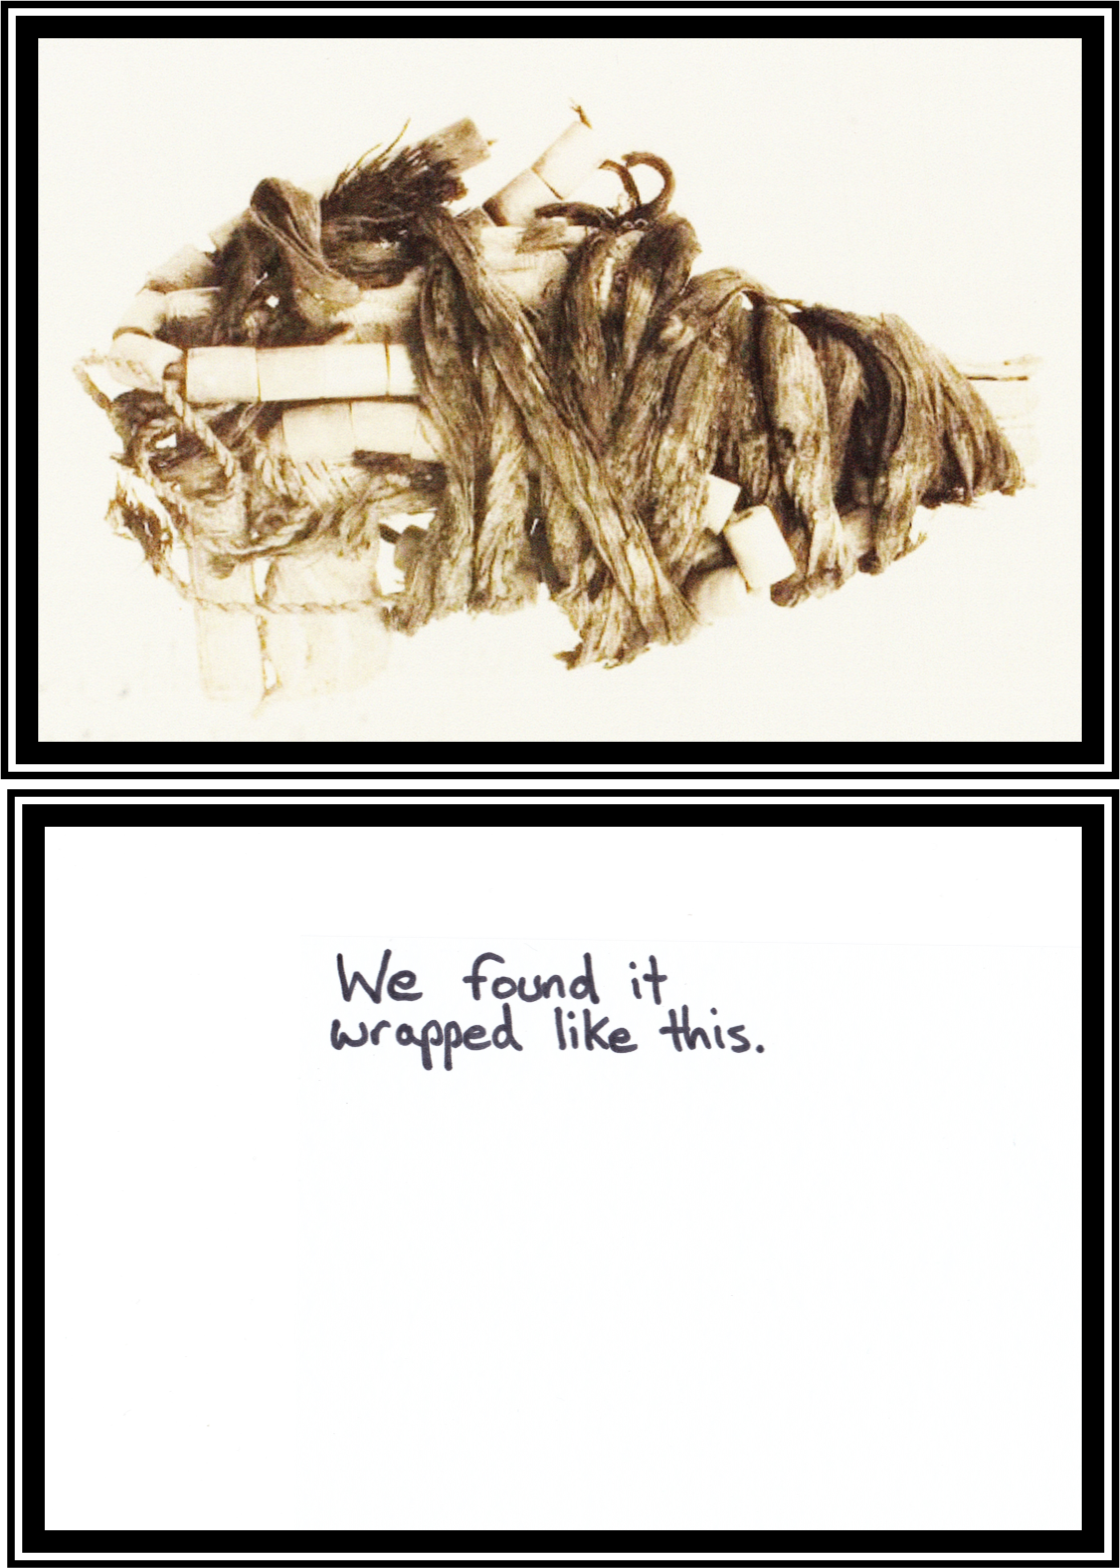 We found it
wrapped like this.